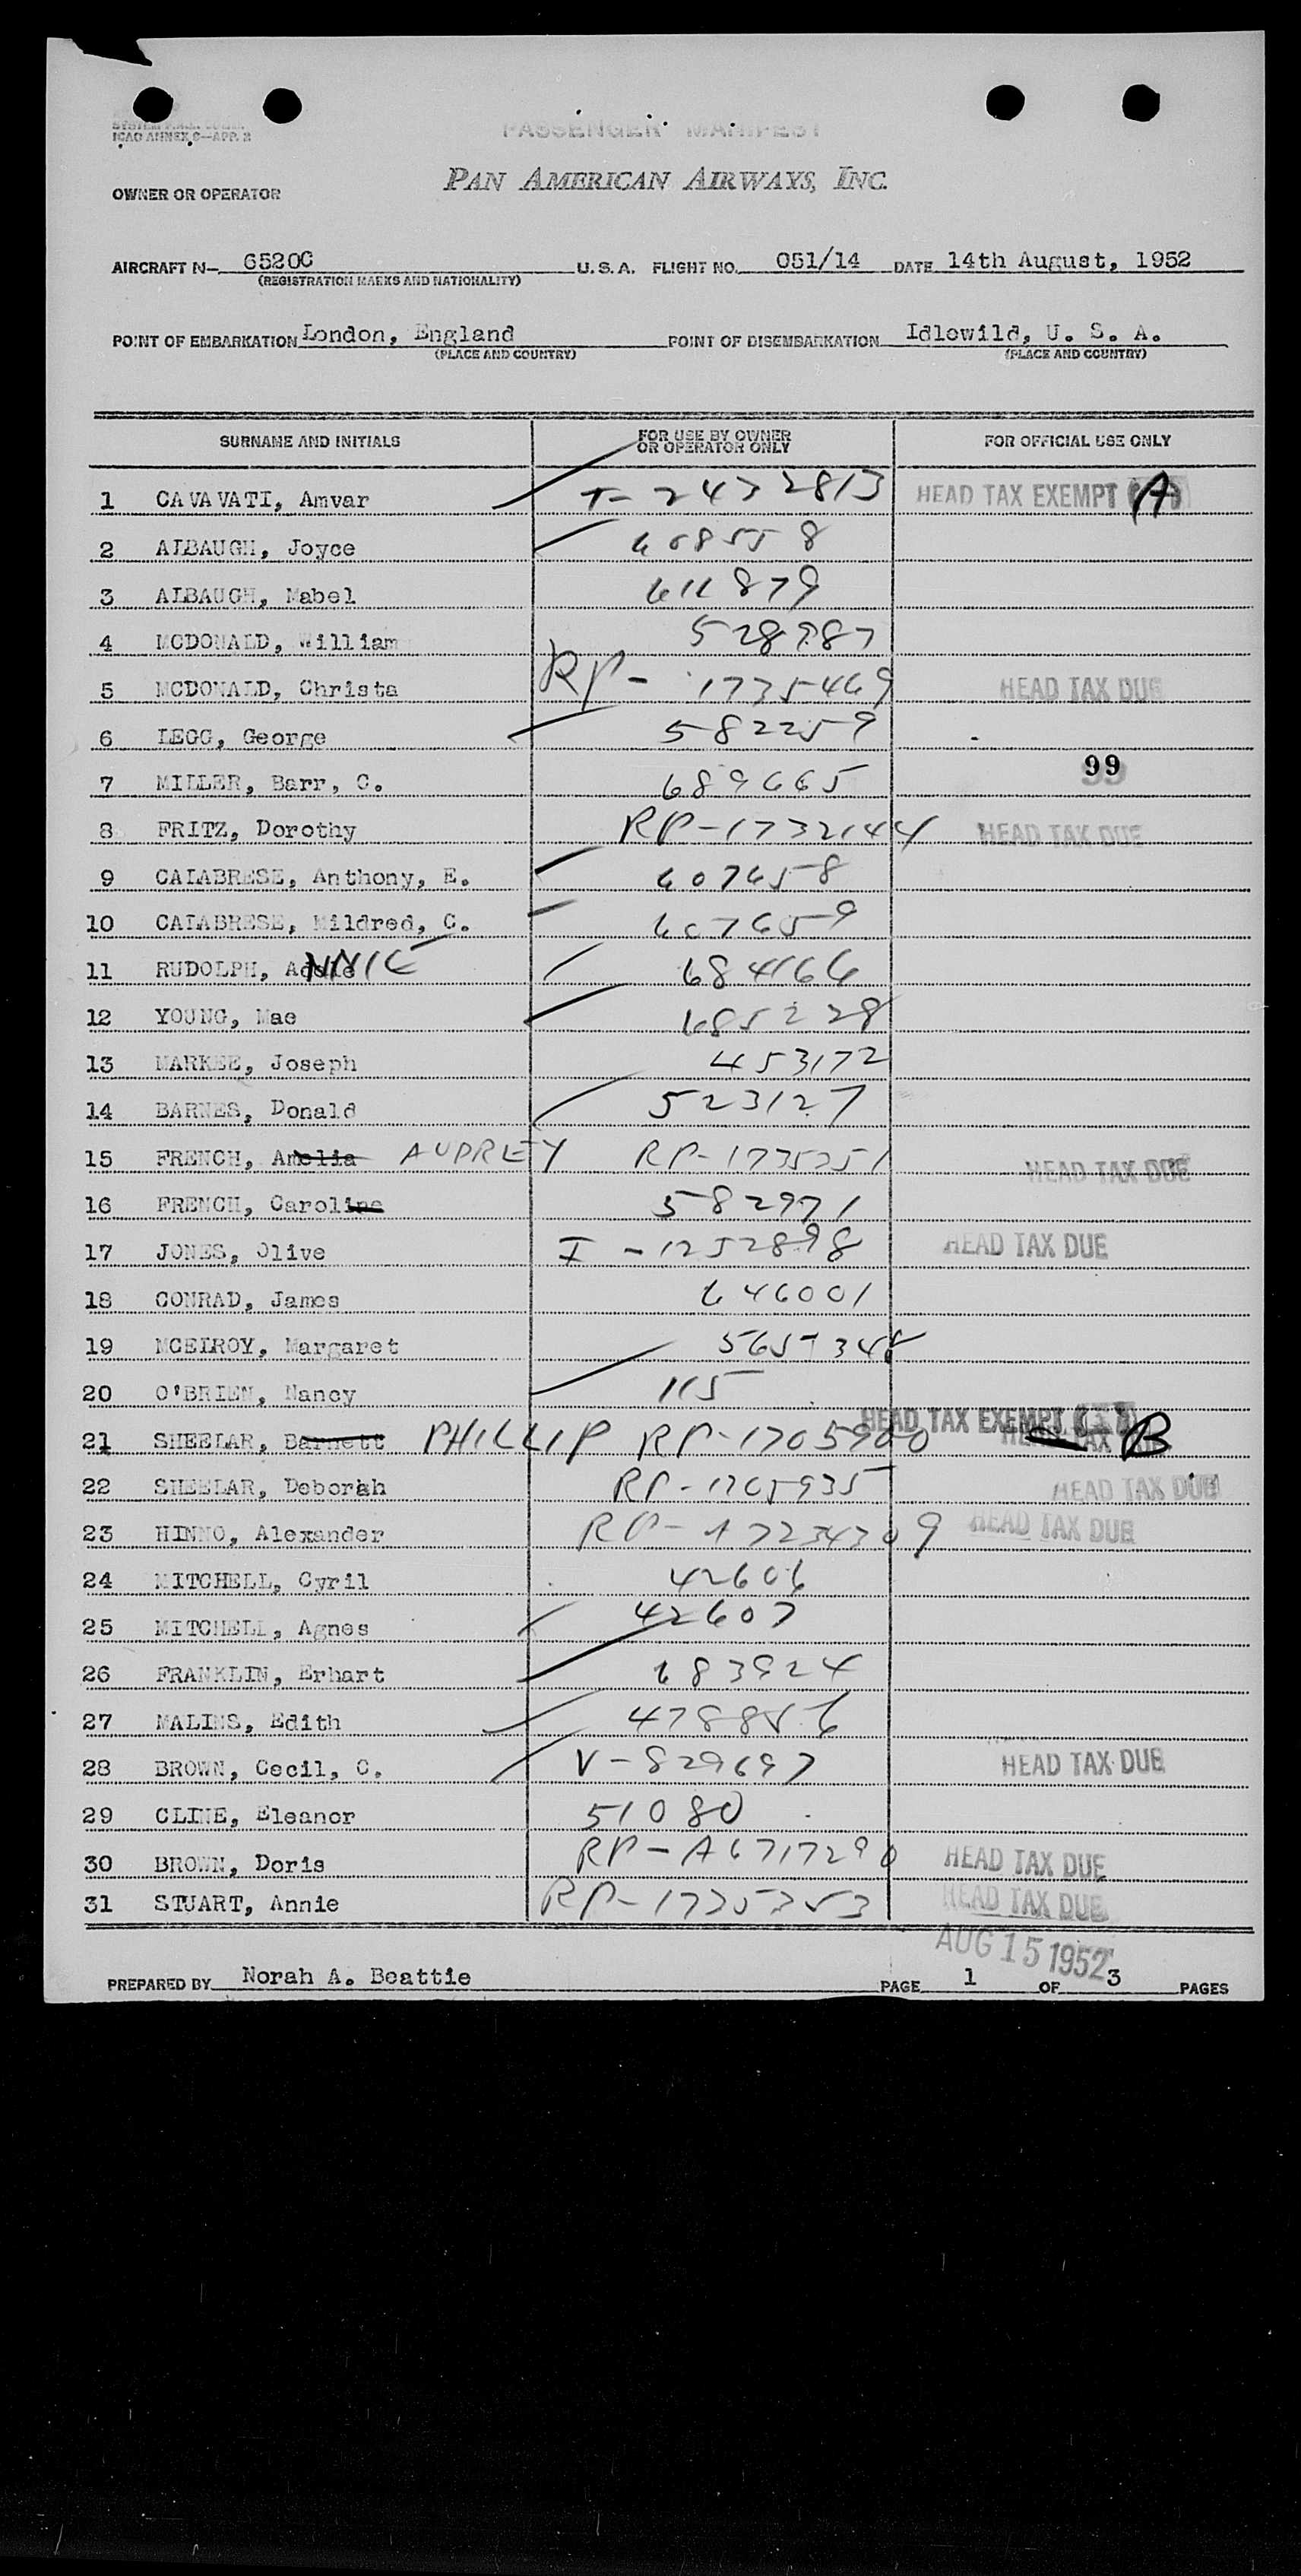 ICAO ANNEX 9—APP. 2
PASSENGER MANIFEST
PAN AMERICAN AIRWAYS, INC.
OWNER OR OPERATOR
AIRCRAFT N— 6520C U. S. A. FLIGHT NO. 051/14 DATE 14th August, 1952
(REGISTRATION MARKS AND NATIONALITY)
POINT OF EMBARKATION London, England POINT OF DISEMBARKATION Idlewild, U. S. A.
(PLACE AND COUNTRY) (PLACE AND COUNTRY)
SURNAME AND INITIALS FOR USE BY OWNER OR OPERATOR ONLY FOR OFFICIAL USE ONLY
1 CAVAVATI, Amvar T-2432813 HEAD TAX EXEMPT A
2 ALBAUGH, Joyce 608558
3 ALBAUGH, Mabel 611879
4 MCDONALD, William 528987
5 MCDONALD, Christa RP- 1735469 HEAD TAX DUE
6 LEGG, George 582259
99
7 MILLER, Barr, C. 689665
8 FRITZ, Dorothy RP-1732144 HEAD TAX DUE
9 CALABRESE, Anthony, E. 607658
10 CALABRESE, Mildred, C. 607659
11 RUDOLPH, ANNIE 684166
12 YOUNG, Mae 685228
13 MARKEE, Joseph 453172
14 BARNES, Donald 523127
15 FRENCH, Amelia AUDREY RP-1735351 HEAD TAX DUE
16 FRENCH, Caroline 582971
17 JONES, Olive I-1252898 HEAD TAX DUE
18 CONRAD, James 646001
19 MCELROY, Margaret 565734
20 O'BRIEN, Nancy 115
HEAD TAX EXEMPT
21 SHEELAR, Barnett PHILLIP RP-1705900 B
22 SHEELAR, Deborah RP-1705935 HEAD TAX DUE
23 HINNO, Alexander RP-A7234309 HEAD TAX DUE
24 MITCHELL, Cyril 42606
25 MITCHELL, Agnes 42607
26 FRANKLIN, Erhart 683924
27 MALINS, Edith 478856
28 BROWN, Cecil, C. V-829697 HEAD TAX DUE
29 CLINE, Eleanor 51080
30 BROWN, Doris RP-A6717290 HEAD TAX DUE
31 STUART, Annie RP-1735353 HEAD TAX DUE
AUG 15 1952
PREPARED BY Norah A. Beattie PAGE 1 OF 3 PAGES